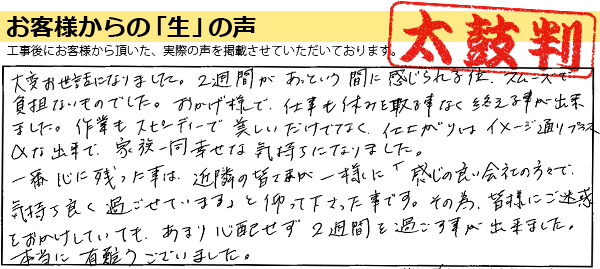 お客様からの「生」の声
工事後にお客様から頂いた、実際の声を掲載させていただいております。
太鼓判
大変お世話になりました。2週間があっという間に感じられる位、スムーズで
負担ないものでした。おかげ様で、仕事も休みを取る事なく終える事が出来
ました。作業もスピーディーで美しいだけでなく、仕上がりはイメージ通りプラス
αな出来で、家族一同幸せな気持ちになりました。
一番心に残った事は、近隣の皆さまが一様に「感じの良い会社の方々で、
気持ち良く過ごせています」と仰って下さった事です。その為、皆様にご迷惑
をおかけしていても、あまり心配せず2週間を過ごす事が出来ました。
本当に有難うございました。